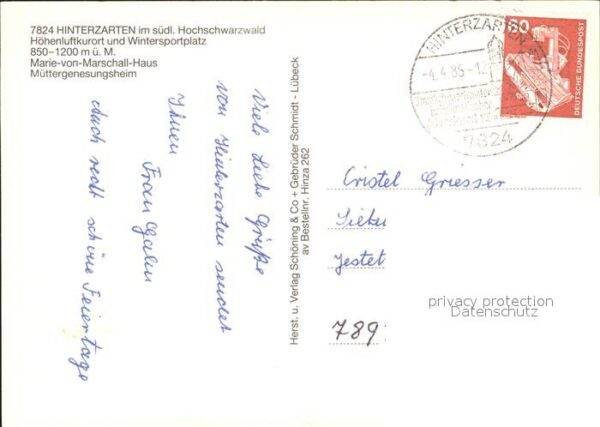 7824 HINTERZARTEN im südl. Hochschwarzwald
Höhenluftkurort und Wintersportplatz
850–1200 m ü. M.
Marie-von-Marschall-Haus
Müttergenesungsheim
Viele liebe Grüße
von Hinterzarten sendet
Ihnen
Frau
Auch recht schöne Feiertage
Herst. u. Verlag Schöning & Co + Gebrüder Schmidt - Lübeck
av Bestellnr. Hinza 262
HINTERZARTEN
-4.4.85-
7824
60
DEUTSCHE BUNDESPOST
Cristel Griesser
Jestet
789
privacy protection
Datenschutz